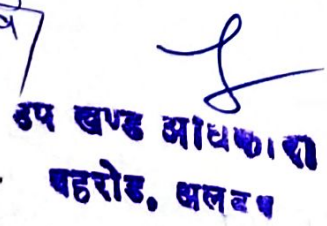 उप खण्ड अधिकारी
बहरोड, अलवर